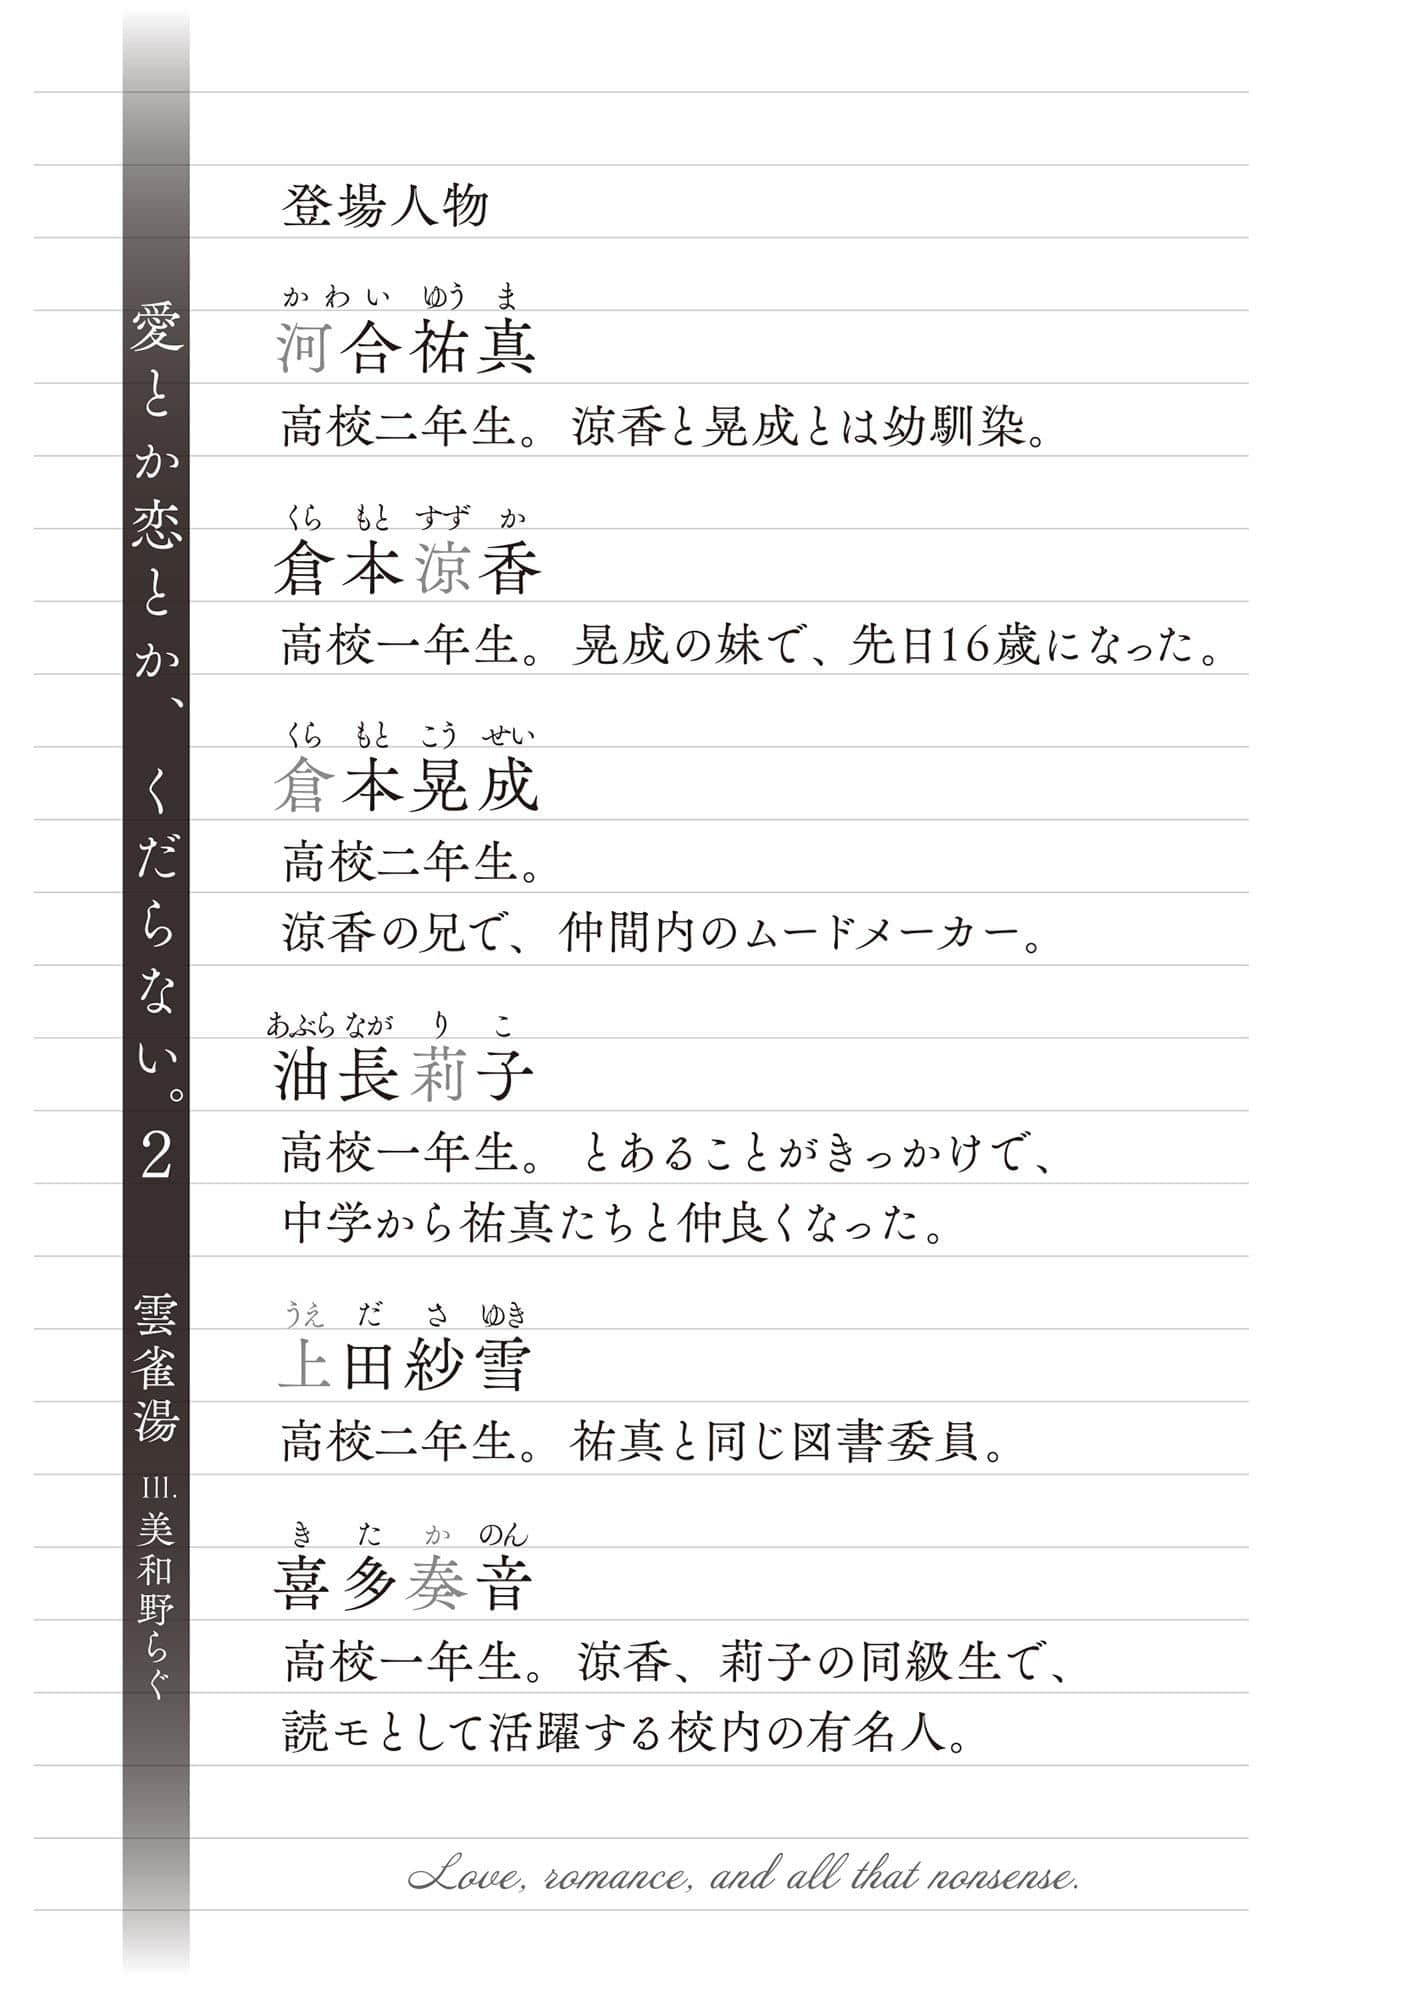 愛とか恋とか、くだらない。2
雲雀湯
Ill.美和野らぐ
登場人物
かわい ゆう ま
河合祐真
高校二年生。涼香と晃成とは幼馴染。
くら もと すず か
倉本涼香
高校一年生。晃成の妹で、先日16歳になった。
くら もと こう せい
倉本晃成
高校二年生。
涼香の兄で、仲間内のムードメーカー。
あぶら なが り こ
油長莉子
高校一年生。とあることがきっかけで、
中学から祐真たちと仲良くなった。
うえ だ さ ゆき
上田紗雪
高校二年生。祐真と同じ図書委員。
き た か のん
喜多奏音
高校一年生。涼香、莉子の同級生で、
読モとして活躍する校内の有名人。
Love, romance, and all that nonsense.